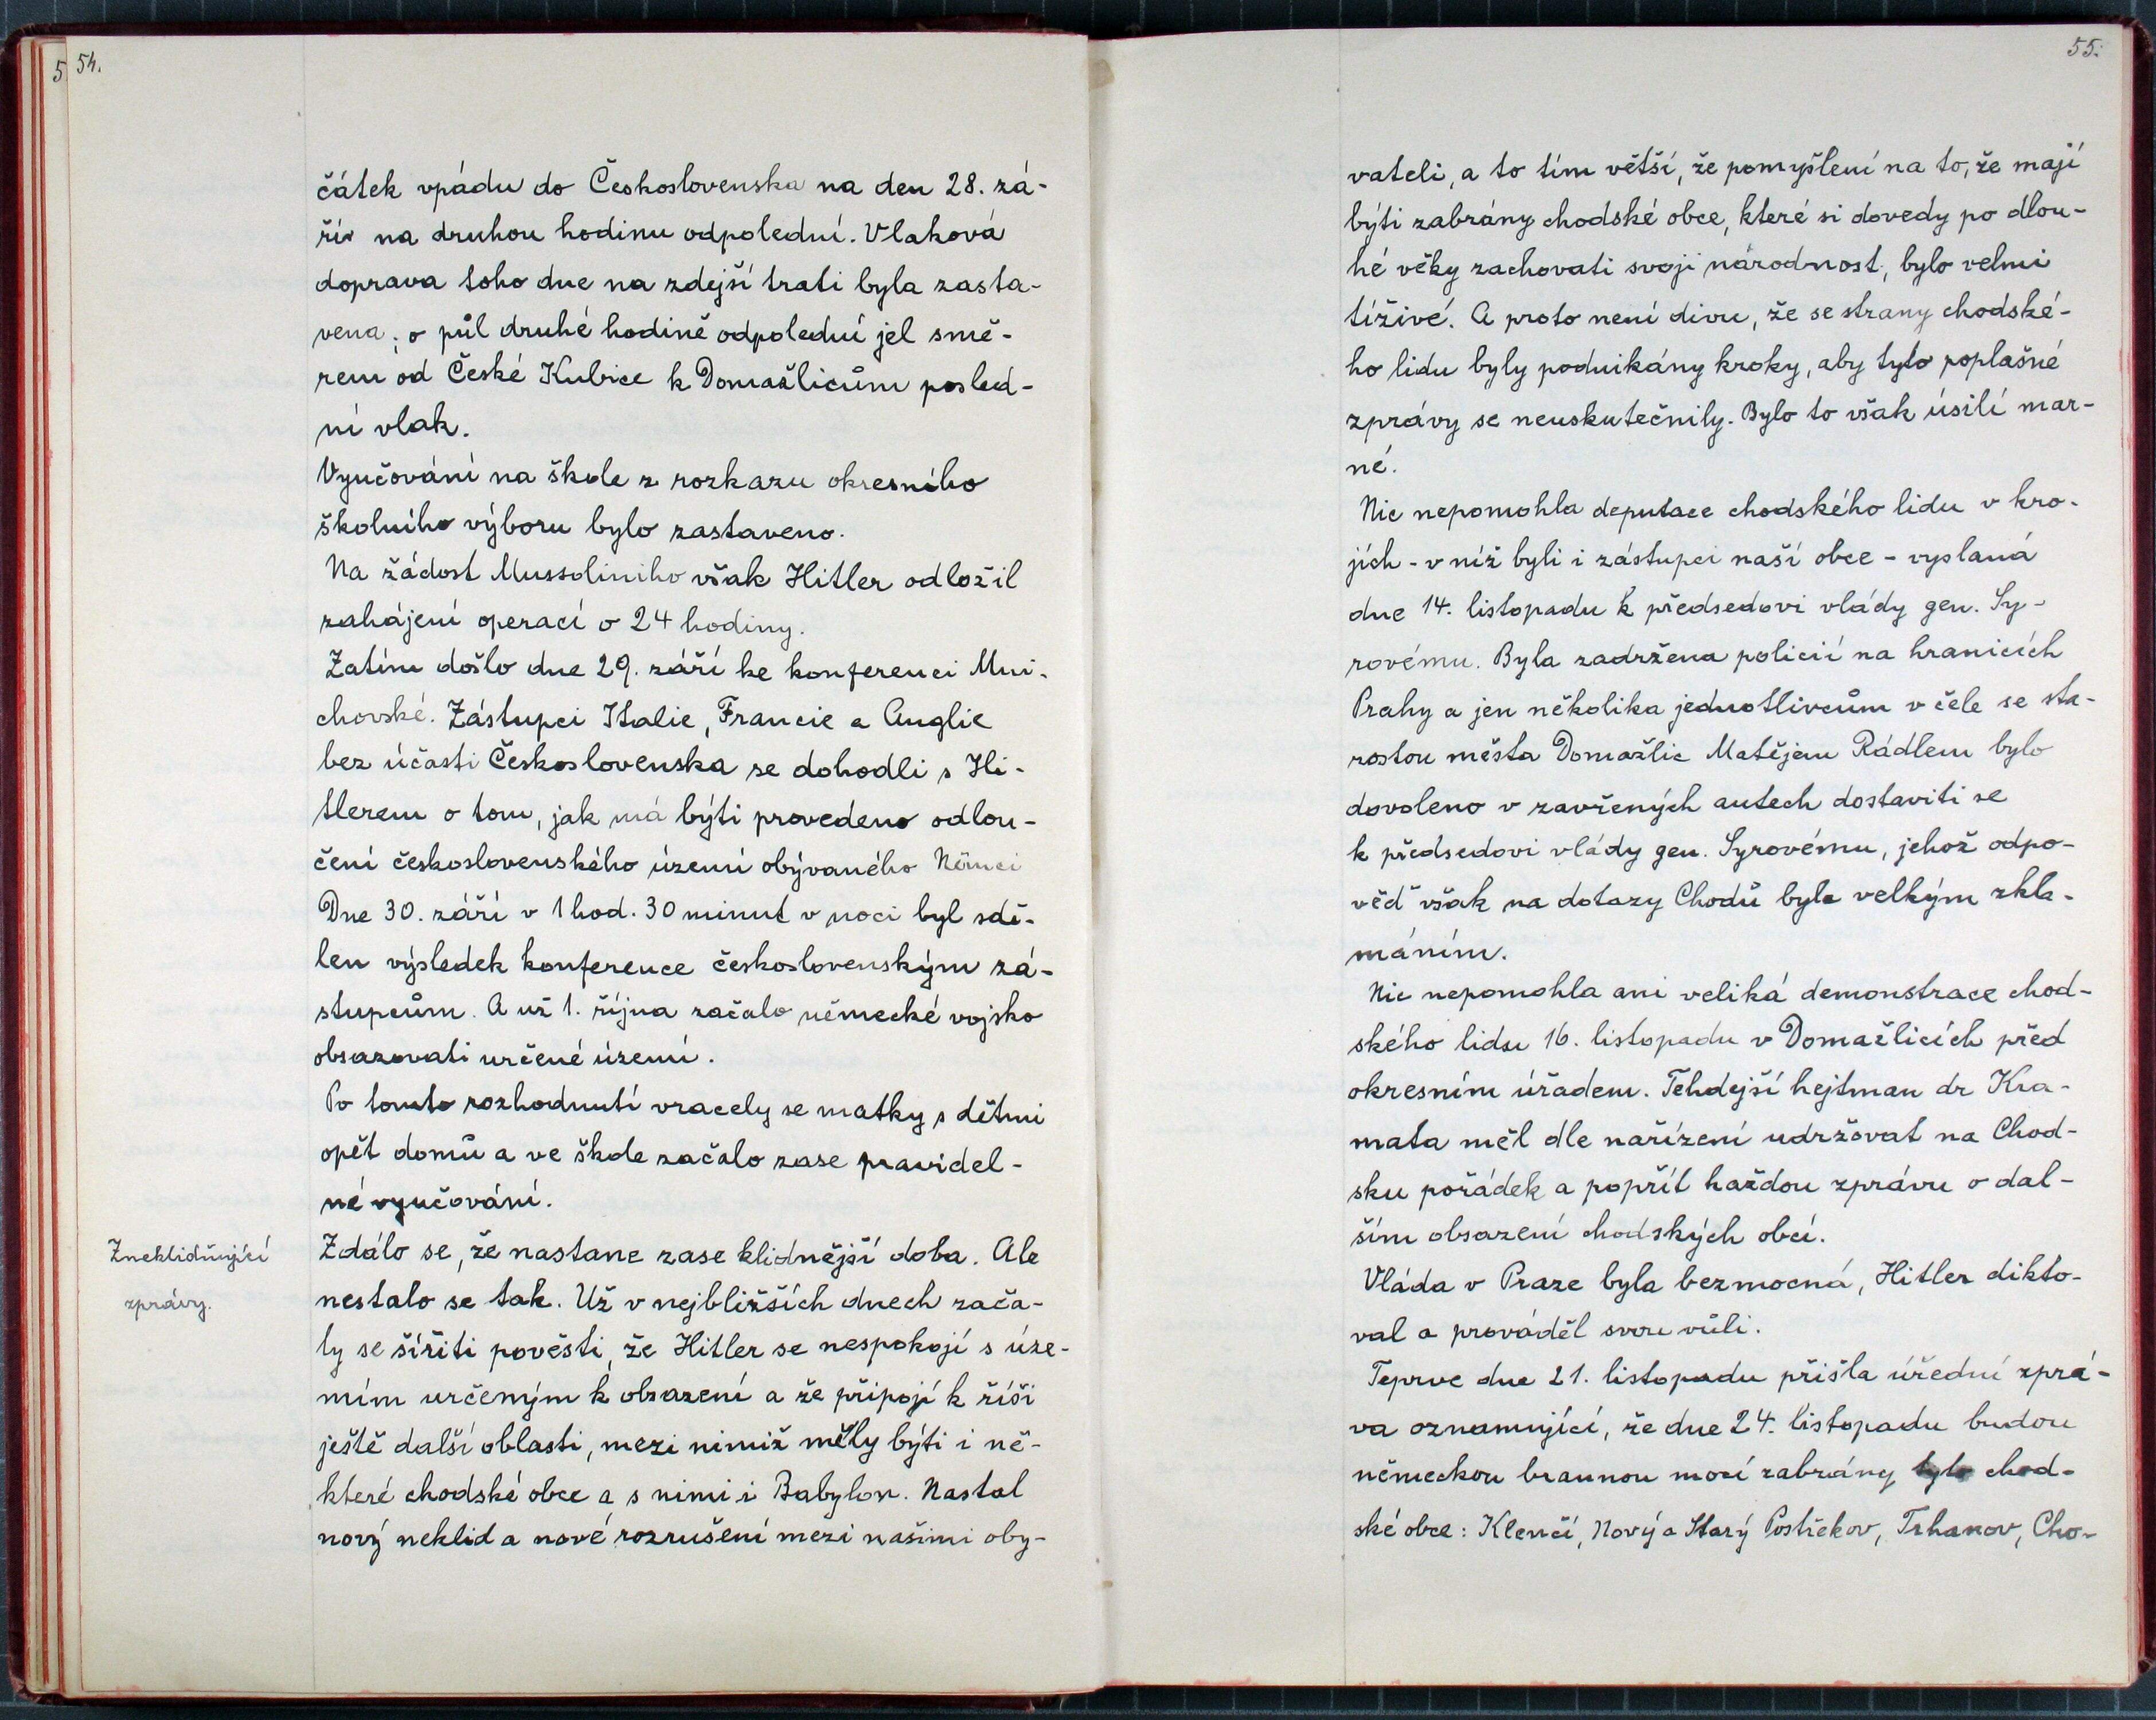 54.
čátek vpádu do Československa na den 28. zá-
ří na druhou hodinu odpolední. Vlaková
doprava toho dne na zdejší trati byla zasta-
vena; o půl druhé hodině odpolední jel smě-
rem od České Kubice k Domažlicům posled-
ní vlak.
Vyučování na škole z rozkazu okresního
školního výboru bylo zastaveno.
Na žádost Mussoliniho však Hitler odložil
zahájení operací o 24 hodiny.
Zatím došlo dne 29. září ke konferenci Mni-
chovské. Zástupci Italie, Francie a Anglie
bez účasti Československa se dohodli s Hi-
tlerem o tom, jak má býti provedeno odlou-
čení československého území obývaného Němci
Dne 30. září v 1 hod. 30 minut v noci byl sdě-
len výsledek konference československým zá-
stupcům. A už 1. října začalo německé vojsko
obsazovati určené území.
Po tomto rozhodnutí vracely se matky s dětmi
opět domů a ve škole začalo zase pravidel-
né vyučování.
Zneklidňující
zprávy.
Zdálo se, že nastane zase klidnější doba. Ale
nestalo se tak. Už v nejbližších dnech zača-
ly se šířiti pověsti, že Hitler se nespokojí s úze-
mím určeným k obsazení a že připojí k říši
ještě další oblasti, mezi nimiž měly býti i ně-
které chodské obce a s nimi i Babylon. Nastal
nový neklid a nové rozrušení mezi našimi oby-
55.
vateli, a to tím větší, že pomyšlení na to, že mají
býti zabrány chodské obce, které si dovedy po dlou-
hé věky zachovati svoji národnost, bylo velmi
tíživé. A proto není divu, že se strany chodské-
ho lidu byly podnikány kroky, aby tyto poplašné
zprávy se neuskutečnily. Bylo to však úsilí mar-
né.
Nic nepomohla deputace chodského lidu v kro-
jích - v níž byli i zástupci naší obce - vyslaná
dne 14. listopadu k předsedovi vlády gen. Sy-
rovému. Byla zadržena policií na hranicích
Prahy a jen několika jednotlivcům v čele se sta-
rostou města Domažlic Matějem Rádlem bylo
dovoleno v zavřených autech dostaviti se
k předsedovi vlády gen. Syrovému, jehož odpo-
věď však na dotazy Chodů byla velkým zkla-
máním.
Nic nepomohla ani veliká demonstrace chod-
ského lidu 16. listopadu v Domažlicích před
okresním úřadem. Tehdejší hejtman dr Kra-
mata měl dle nařízení udržovat na Chod-
sku pořádek a popřít každou zprávu o dal-
ším obsazení chodských obcí.
Vláda v Praze byla bezmocná, Hitler dikto-
val a prováděl svou vůli.
Teprve dne 21. listopadu přišla úřední zprá-
va oznamující, že dne 24. listopadu budou
německou brannou mocí zabrány tyto chod-
ské obce: Klenčí, Nový a Starý Postřekov, Trhanov, Cho-